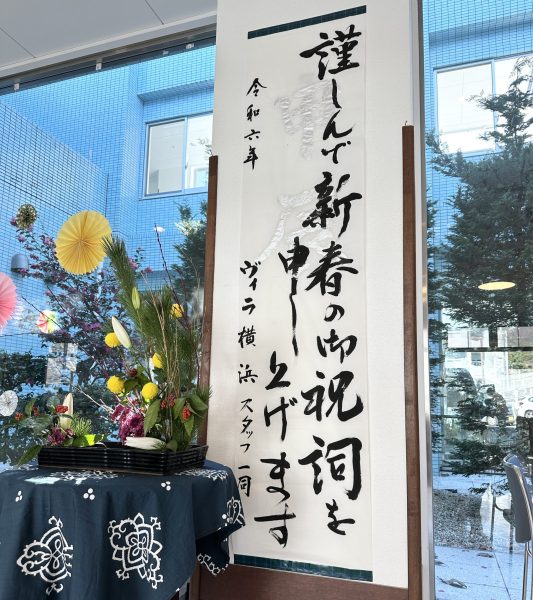 謹しんで新春の御祝詞を
申し上げます
令和六年
ヴィラ横浜スタッフ一同